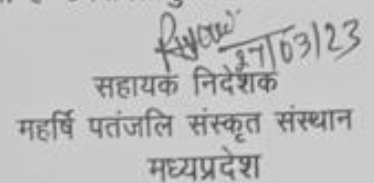 27/03/23
सहायक निदेशक
महर्षि पतंजलि संस्कृत संस्थान
मध्यप्रदेश